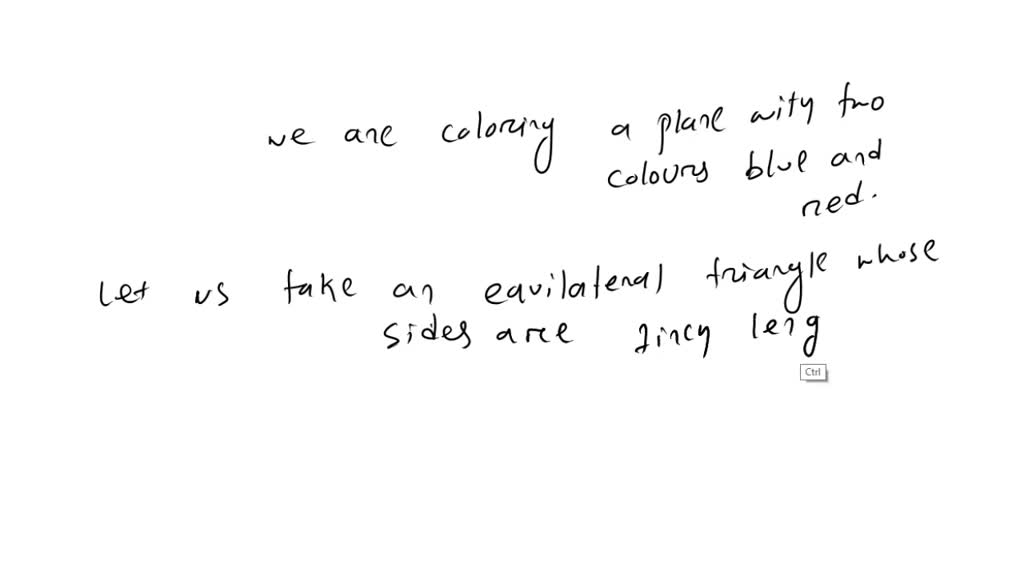 we are coloring a plane with two
colours blue and
red.
Let us take an equilateral triangle whose
sides are 1incy leng
Ctrl